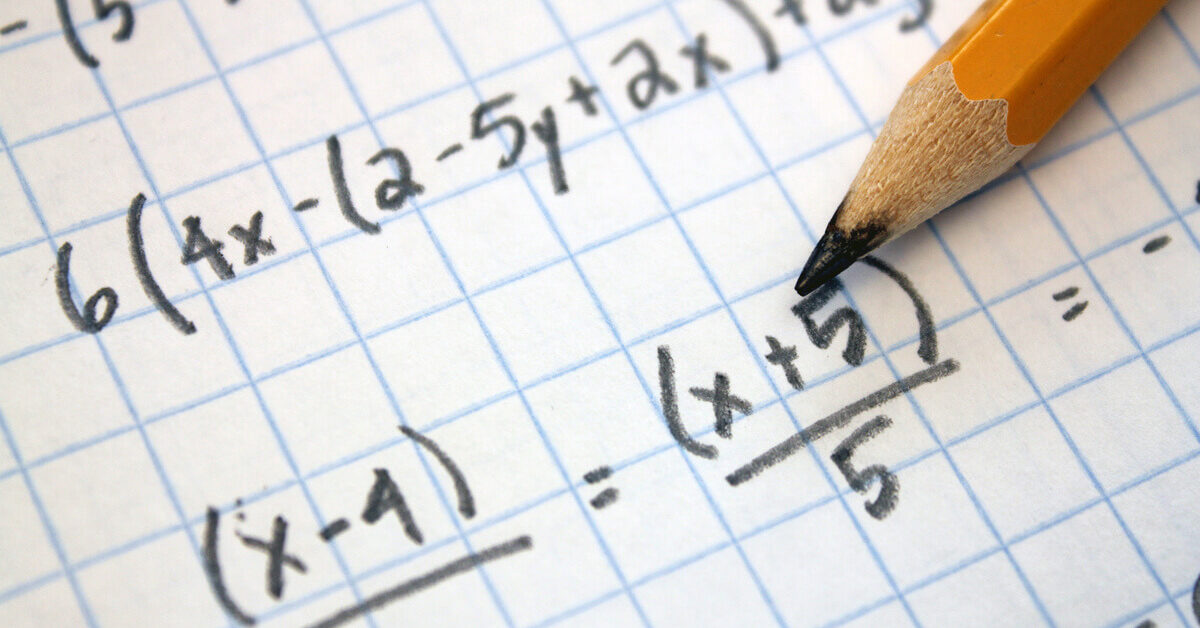 - (5
6(4x - (2 - 5y + 2x) +
(x - 4) = (x + 5) =
5